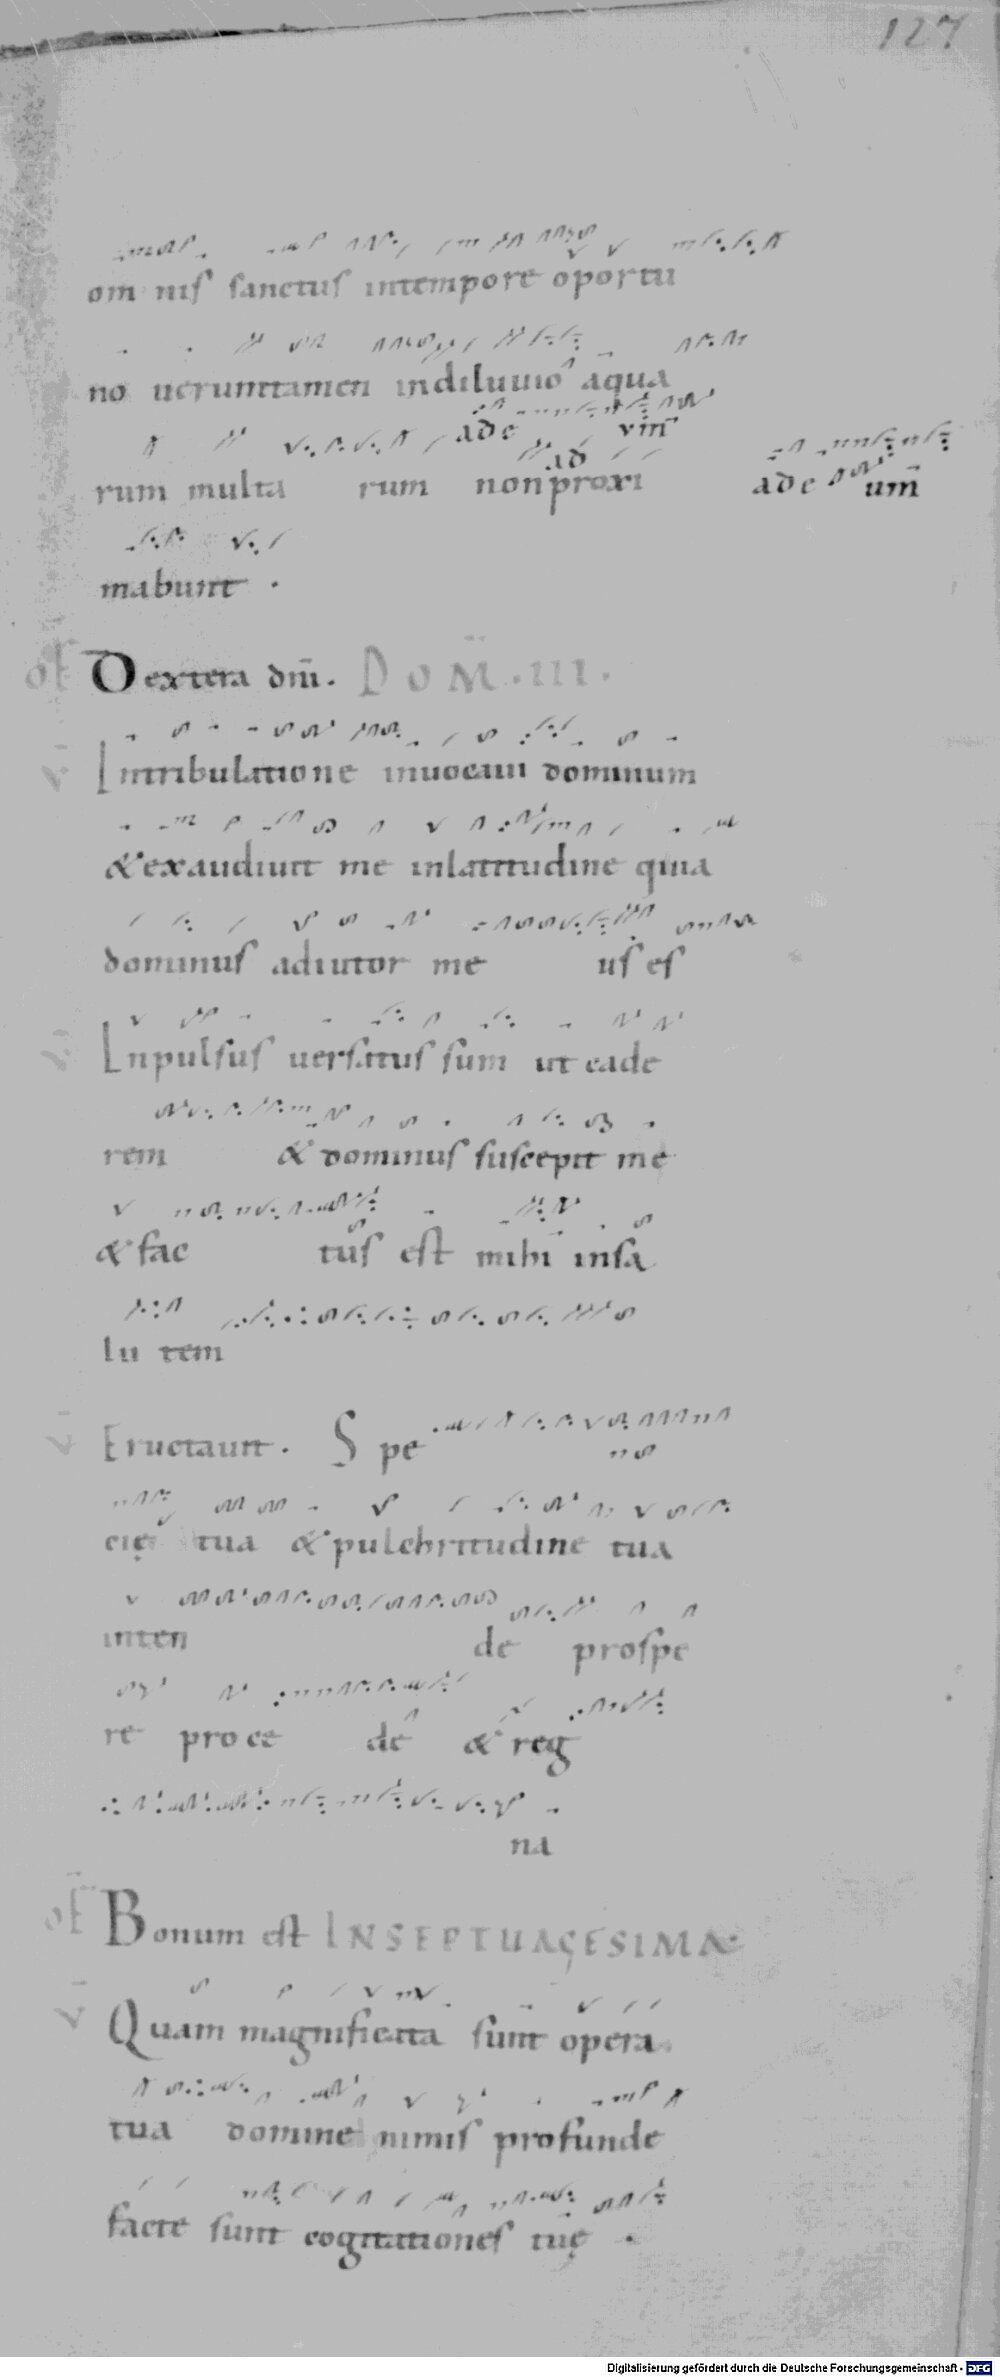 127
om nis sanctus intempore oportu
no uerumtamen indiluuio aqua
ade vm̄
rum multa rum non proxi ad ade um̄
mabunt .
of Dextera dm̄. DOM̄. III.
v̄ Intribulatione inuocaui dominum
& exaudiuit me inlatitudine quia
dominus adiutor me us es
v̄ Inpulsus uersatus sum ut cade
rem & dominus suscepit me
& fac tus est mihi insa
lu tem
v̄ Eructauit. Spe
cię tua & pulchritudine tua
inten de prospe
re proce de & reg
na
of Bonum est INSEPTUAGESIMA
v̄ Quam magnificata sunt opera
tua domine nimis profunde
factę sunt cogitationes tuę .
Digitalisierung gefördert durch die Deutsche Forschungsgemeinschaft - DFG